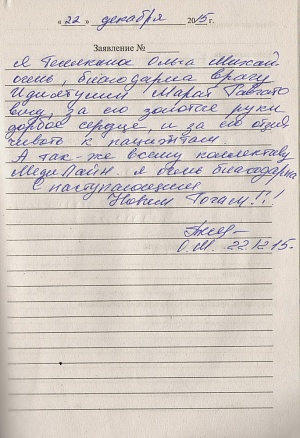 « 22 » декабря 2015 г.
Заявление №
Я Ольга Михай
очень, благодарна врачу
Марат
ечу, за его золотые руки
доброе сердце, и за его
к пациентам.
А так-же всему коллективу
МедиЛайн. я очень благодарна
С наступающим
Новым Годом!!!
О.М. 22.12.15.